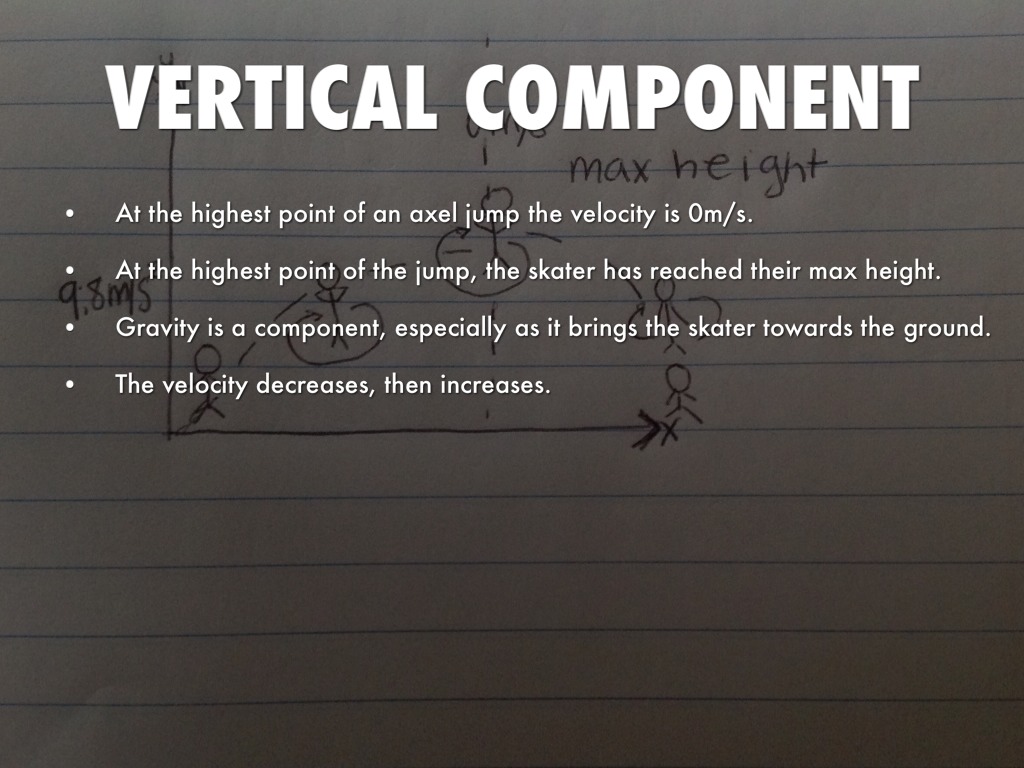 VERTICAL COMPONENT
max height
• At the highest point of an axel jump the velocity is 0m/s.
• At the highest point of the jump, the skater has reached their max height.
9.8m/s
• Gravity is a component, especially as it brings the skater towards the ground.
• The velocity decreases, then increases.
x